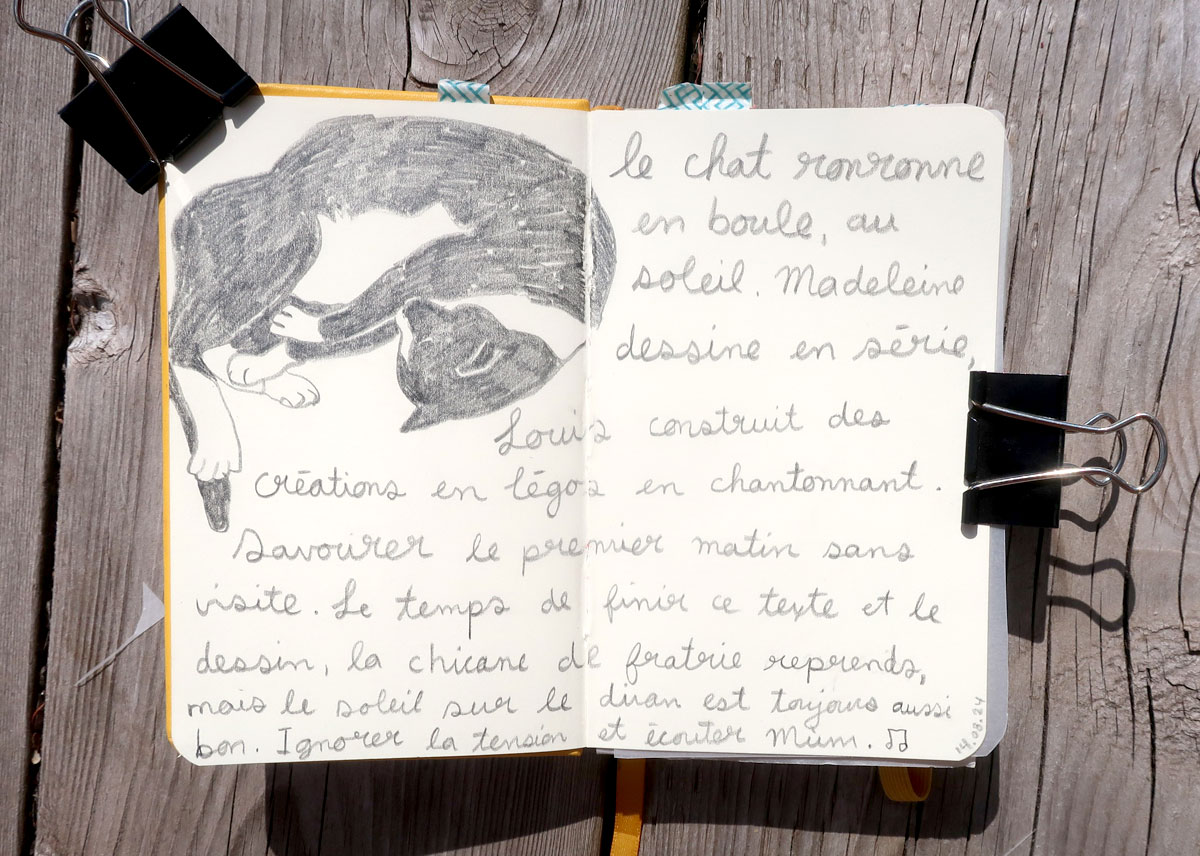 le chat ronronne
en boule, au
soleil. Madeleine
dessine en série,
Louis construit des
créations en légos en chantonnant.
Savourer le premier matin sans
visite. Le temps de finir ce texte et le
dessin, la chicane de fratrie reprends,
mais le soleil sur le divan est toujours aussi
bon. Ignorer la tension et écouter Mùm. ♫
14.09.24